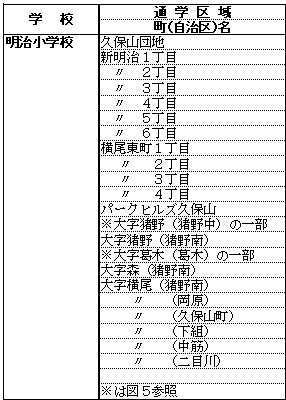 学　校
通　学　区　域
町(自治区)名
明治小学校
久保山団地
新明治１丁目
〃　２丁目
〃　３丁目
〃　４丁目
〃　５丁目
〃　６丁目
横尾東町１丁目
〃　２丁目
〃　３丁目
〃　４丁目
パークヒルズ久保山
※大字猪野（猪野中）の一部
大字猪野（猪野南）
※大字葛木（葛木）の一部
大字森（猪野南）
大字横尾（猪野南）
〃　（岡原）
〃　（久保山町）
〃　（下組）
〃　（中筋）
〃　（二目川）
※は図５参照